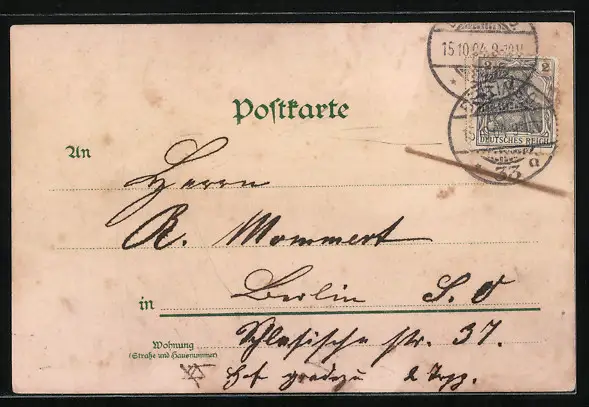 15.10.04.9-10V
2
DEUTSCHES REICH
33 a
Postkarte
An
Herrn
R. Mommert
in Berlin S. O
Wohnung
(Straße und Hausnummer)
Schlesische str. 37.
Hof gradezu 2 Trpp.